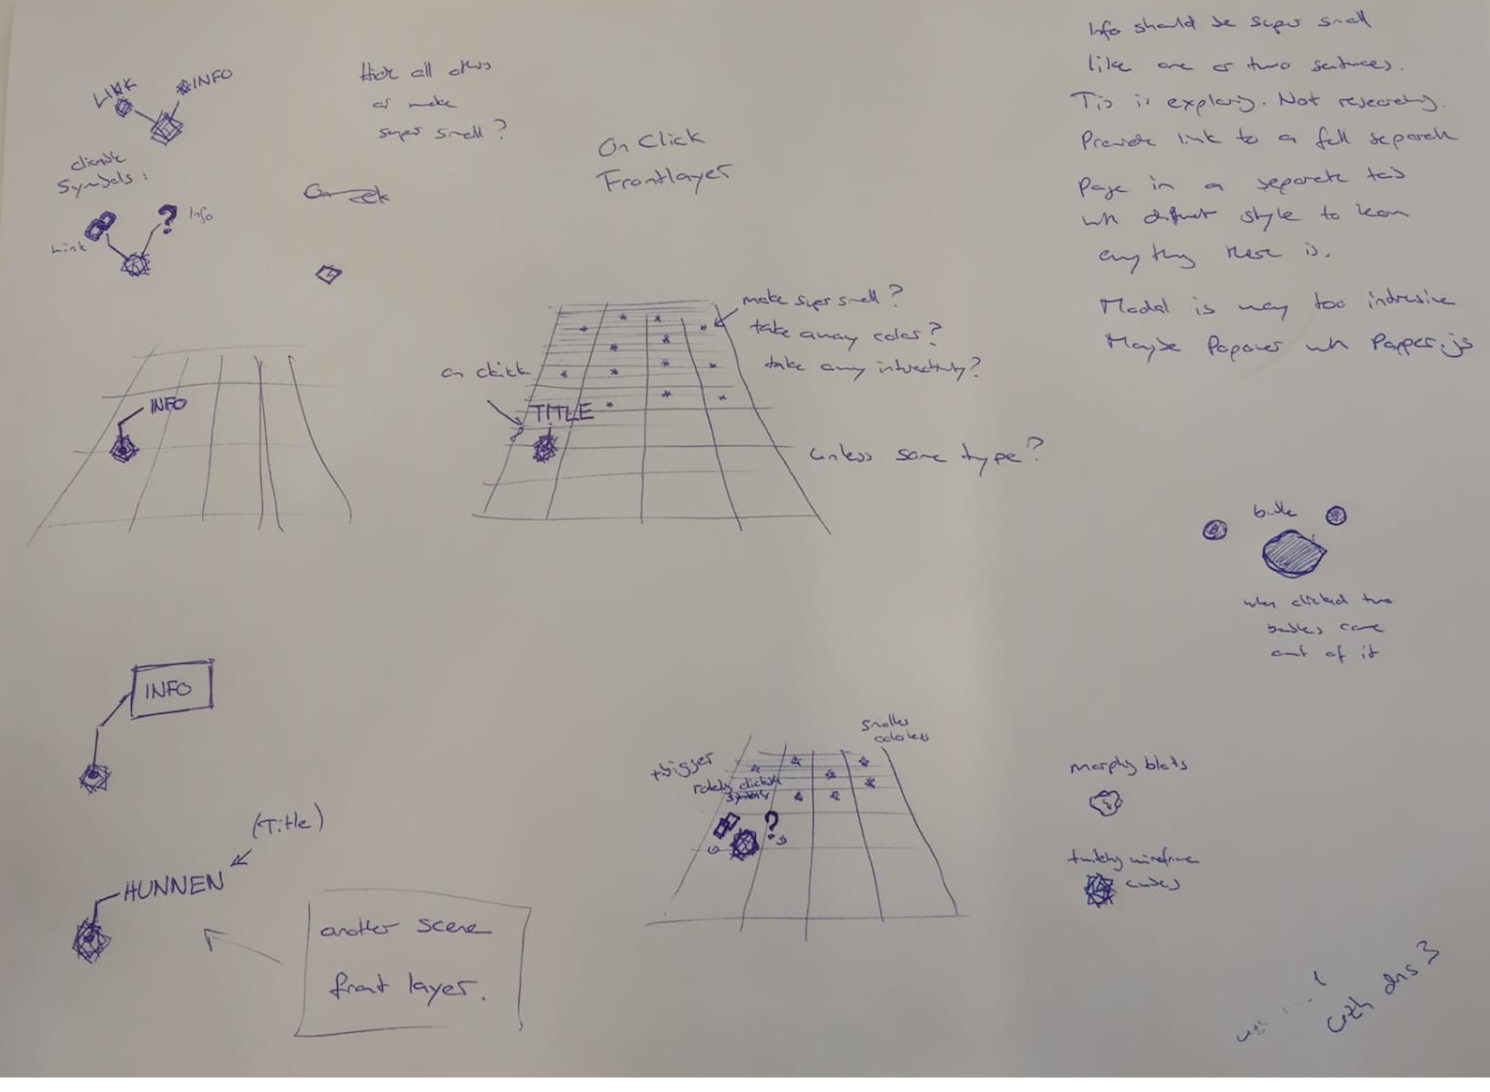 LINK
INFO
clickable
Symbols:
Link
?
Info
Hide all others
or make
super small?
On Click
Frontlayer
Info should be super small
like one or two sentences.
This is exploring. Not researching.
Provide link to a full separate
page in a separate tab
with different style to learn
anything there is.
Modal is way too intrusive
Maybe Popover with Popper.js
INFO
on click
TITLE
make super small?
take away color?
take away interactivity?
unless same type?
bubble
when clicked two
bubbles come
out of it
INFO
(Title)
HUNNEN
another scene
front layer.
+bigger
smaller
colorless
?
morphy blobs
twitchy wireframe
cubes
with